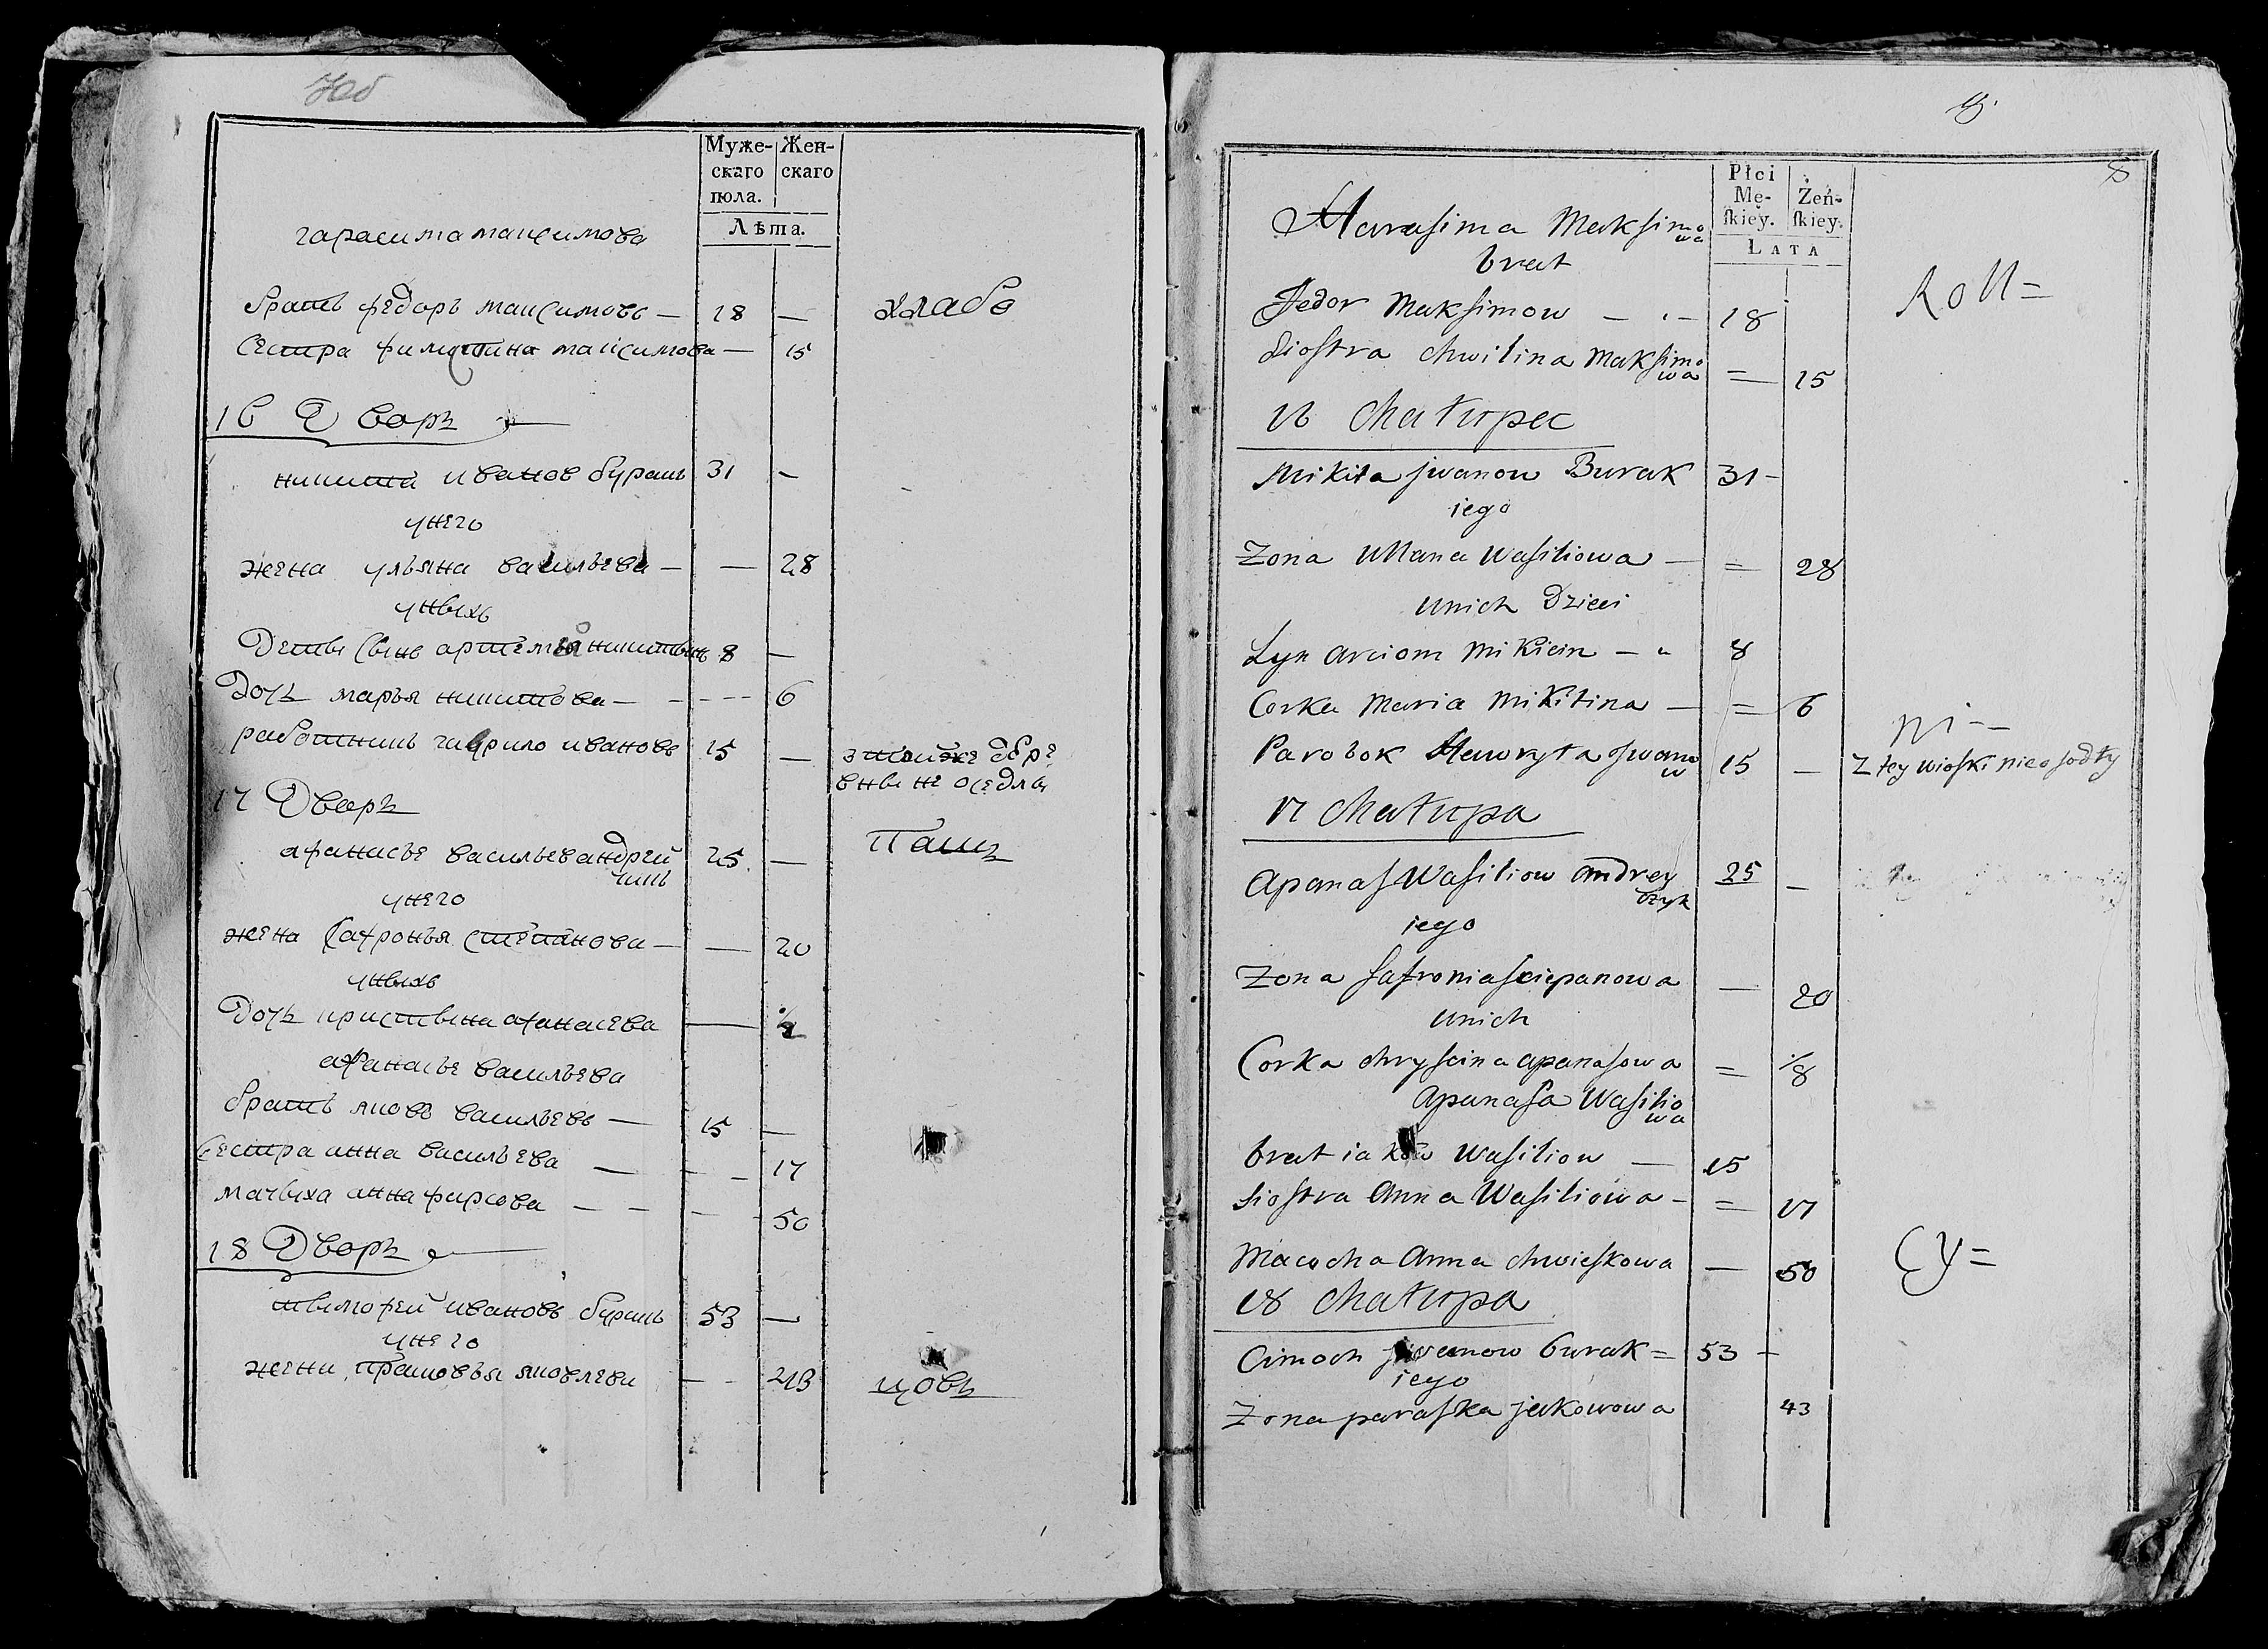 Муже-
скаго
пола.
Жен-
скаго
Лѣта.
гарасима максимова
братъ федоръ максимовъ — 18 —
Сестра максимова — 15
16 Дворъ
никита иванов буракъ 31 —
унего
жена ульяна васильева — — 28
унихъ
Дети Сынъ артемъ никитинъ 8 —
Дочь марья никитова — 6
работникъ гаврило ивановъ 15 —
17 Дворъ
афанасье васильев андрей 25 —
чикъ
унего
жена Сафронья степанова — — 20
унихъ
Дочь кристина афанасева —
афанасье васильева
братъ яковъ васильевъ — 15 —
Сестра анна васильева — — 17
мачиха анна фирсова — — — 50
18 Дворъ
тимофей ивановъ буракъ 53 —
унего
жена прасковья яковлева — 43
Płci
Mę-
ſkiey.
Żeń-
ſkiey.
LATA
Harasima Maksimo
wa
brat
Fedor Maksimow — 18
Siostra Chwilina Maksimo
wa = 15
16 Chałupa
Mikita Jwanow Burak 31 -
iego
Zona Ullana Wasiliowa — = 28
unich Dzieci
Syn Arciom Mikicin — 8
Corka Maria Mikitina — = 6
Parobok Hawryła Jwano
w 15 —
z tey wioski nieosiadły
17 Chałupa
Apanas Wasiliow Andrey
czyk 25 —
iego
Zona Safronia Sciepanowa — 20
unich
Corka Chryscina Apanasowa =
Apanasa Wasilio
wa
brat iakow Wasiliow — 15
siostra Anna Wasiliowa - = 17
Macocha Anna Chwieskowa — 50
18 Chałupa
Cimoch Jwanow Burak = 53 -
iego
Zona paraska jakowowa 43